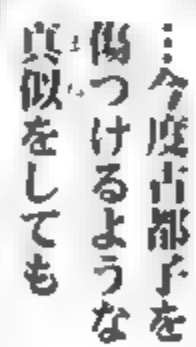 …今度古都子を
傷つけるような
真似をしても